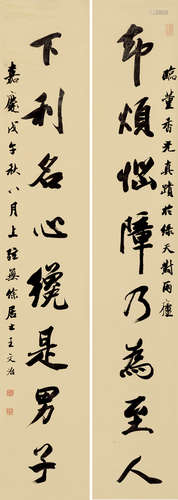 臨董香光真蹟於綠天對雨廬
却煩惱障乃為至人
下利名心纔是男子
嘉慶戊午秋八月上澣無餘居士王文治